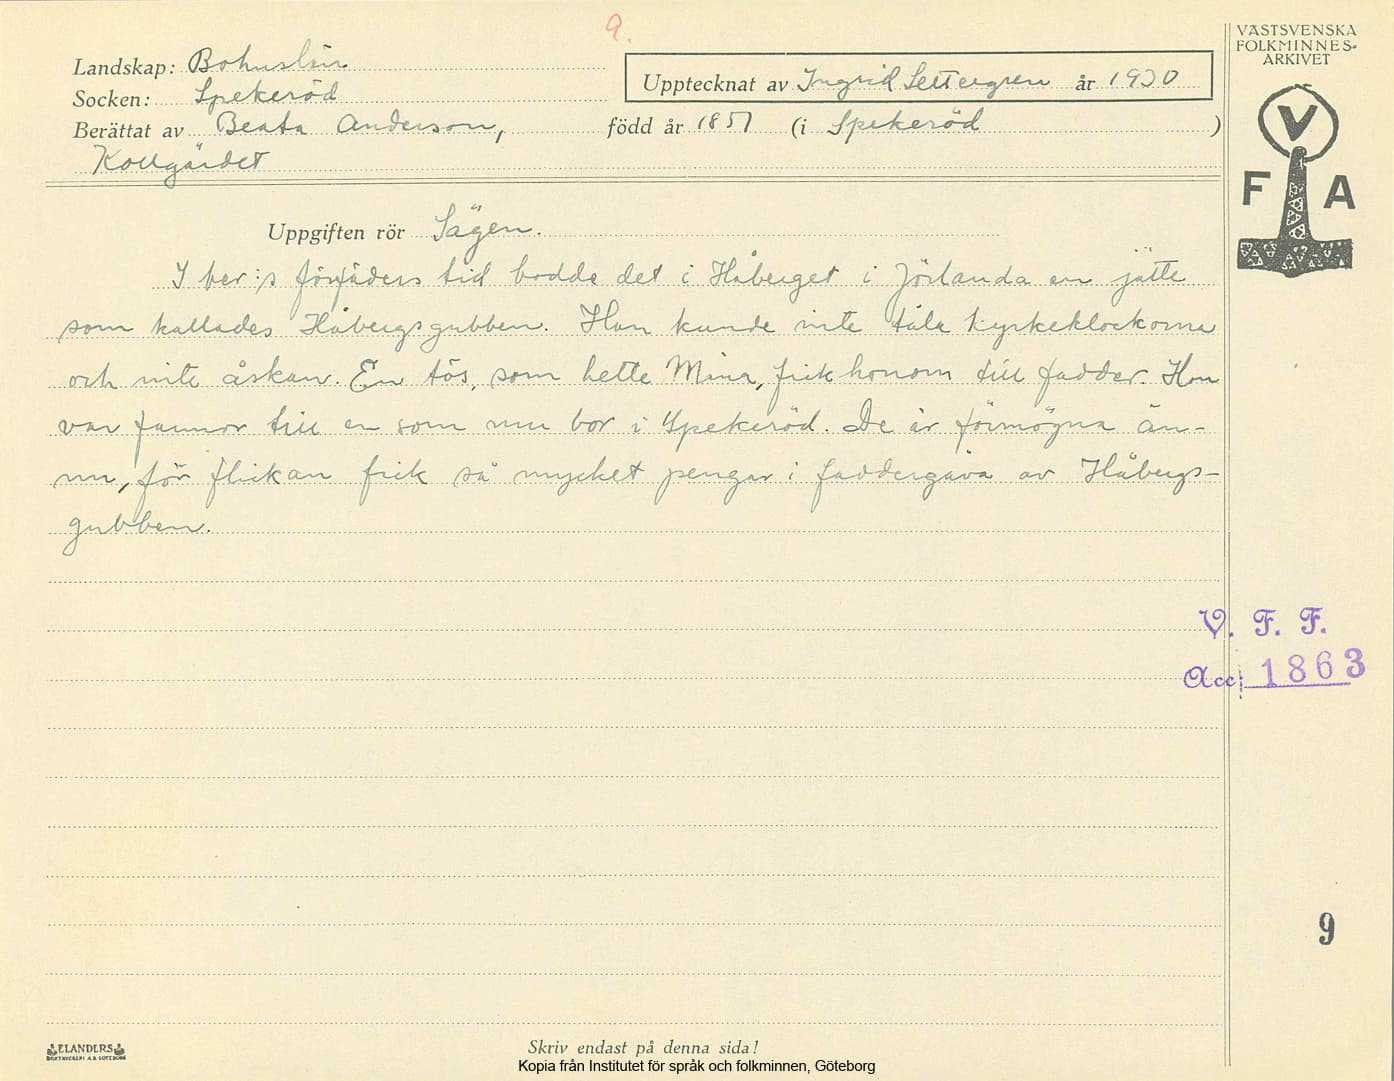 9.
VÄSTSVENSKA
FOLKMINNES-
ARKIVET
Landskap: Bohuslän
Upptecknat av Ingrid Settergren år 1930
Socken: Spekeröd
Berättat av Beata Anderson, född år 1851 (i Spekeröd )
Kollgärdet
V
F A
Uppgiften rör Sägen.
I ber:s förfäders tid bodde det i Håberget i Jörlanda en jätte
som kallades Håbergsgubben. Han kunde inte tåla kyrkeklockorna
och inte åskan. En tös, som hette Mina, fick honom till fadder. Hon
var farmor till en som nu bor i Spekeröd. De är förmögna än-
nu, för flickan fick så mycket pengar i faddergåva av Håbergs-
gubben.
V. F. F.
Acc: 1863
9
ELANDERS
BOKTRYCKERI A.B. GÖTEBORG
Skriv endast på denna sida!
Kopia från Institutet för språk och folkminnen, Göteborg